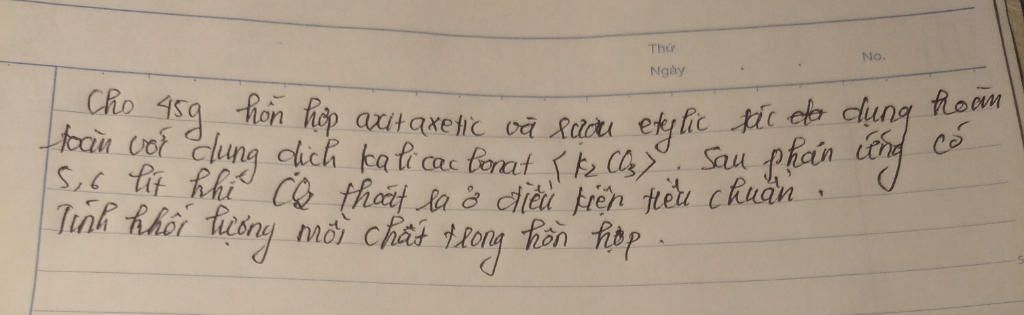 Thứ
Ngày
No.
Cho 45g hỗn hợp axit axetic và rượu etylic tác dụng hoàn
toàn với dung dịch kali cacbonat (K2CO3). Sau phản ứng có
5,6 lít khí CO2 thoát ra ở điều kiện tiêu chuẩn.
Tính khối lượng mỗi chất trong hỗn hợp.